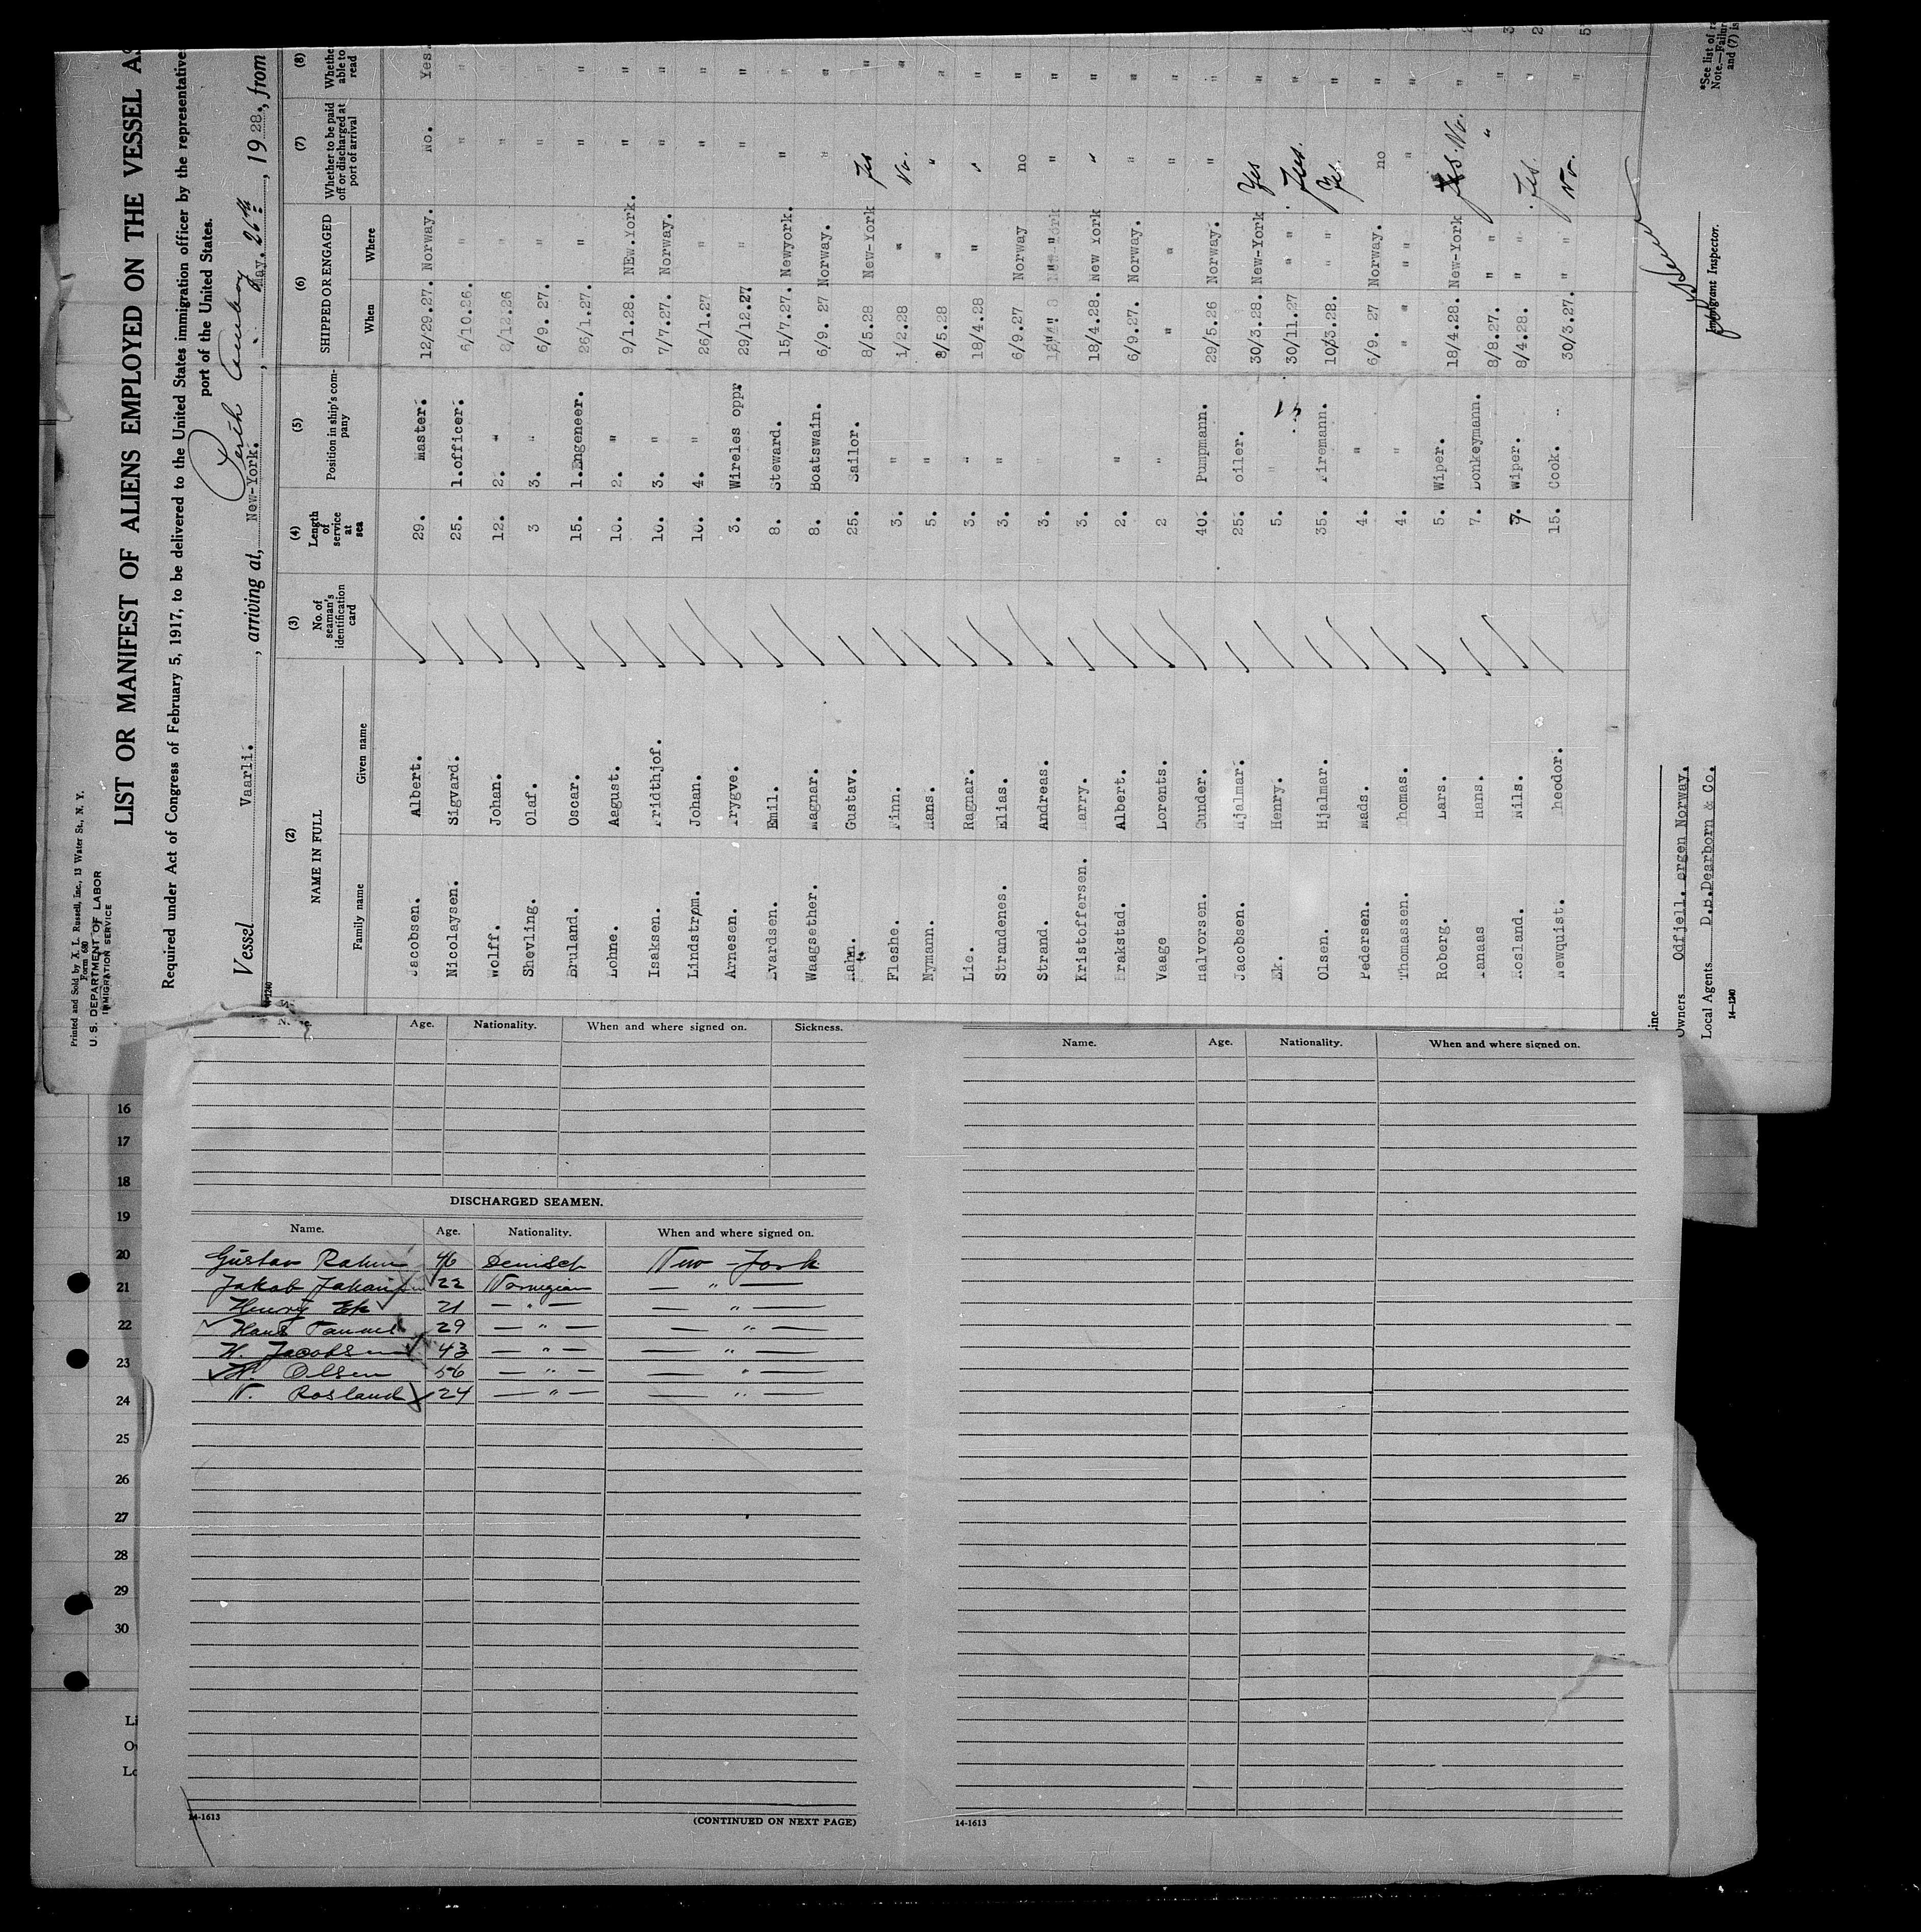 Printed and Sold by X. L. Russell, Inc., 13 Water St., N. Y.
Form 680
U. S. DEPARTMENT OF LABOR
IMMIGRATION SERVICE
LIST OR MANIFEST OF ALIENS EMPLOYED ON THE VESSEL AS
Required under Act of Congress of February 5, 1917, to be delivered to the United States immigration officer by the representative
port of the United States.
Perth Amboy
Vessel Vaarli. , arriving at, New-York. , May. 26th , 1928., from
14-1240
(2) (3) (4) (5) (6) (7) (8)
NAME IN FULL No. of seaman's identification card Length of service at sea Position in ship's company SHIPPED OR ENGAGED Whether to be paid off or discharged at port of arrival Whether able to read
Family name Given name When Where
Jacobsen. Albert. 29. Master. 12/29.27. Norway. No. Yes.
Nicolaysen. Sigvard. 25. 1.officer. 6/10.26. " " "
Wolff. Johan. 12. 2. " 8/12.26 " " "
Shevling. Olaf. 3 3. " 6/9. 27. " " "
Bruland. Oscar. 15. 1.Engeneer. 26/1.27. " " "
Lohne. Aagust. 10. 2. " 9/1.28. NEw.York. " "
Isaksen. Fridthjof. 10. 3. " 7/7.27. Norway. " "
Lindstrøm. Johan. 10. 4. " 26/1.27 " " "
Arnesen. Trygve. 3. Wireles oppr 29/12.27 " " "
Evardsen. Emil. 8. Steward. 15/7.27. Newyork. " "
Waagsether. Magnar. 8. Boatswain. 6/9. 27 Norway. " "
Rahn. Gustav. 25. Sailor. 8/5.28 New-York Yes "
Fleshe. Finn. 3. " 1/2.28 " No. "
Nymann. Hans. 5. " 8/5.28 " " "
Lie. Ragnar. 3. " 18/4.28 " " "
Strandenes. Elias. 3. " 6/9.27 Norway no "
Strand. Andreas. 3. " " " "
Kristoffersen. Harry. 3. 18/4.28. New York " "
Brakstad. Albert. 2. " 6/9.27. Norway. " "
Vaage Lorents. 2 " " " " "
Halvorsen. Gunder. 40. Pumpmann. 29/5.26 Norway. " "
Jacobsen. Hjalmar. 25. Oiler. 30/3.28. New-York Yes "
Ek. Henry. 5. " 30/11.27 " " Yes. "
Olsen. Hjalmar. 35. Firemann. 10/3.28. " Yes. "
Pedersen. Mads. 4. " 6/9. 27 Norway. no "
Thomassen. Thomas. 4. " " " " " "
Roberg. Lars. 5. Wiper. 18/4.28. New-York Yes. No. "
Tanaas Hans. 7. Donkeymann. 8/8.27. " " " "
Rosland. Nils. 7. Wiper. 8/4.28. " " Yes. "
Newquist. Theodor. 15. Cook. 30/3.27. " " No. "
Immigrant Inspector.
*See list of
Note.—Failur
and (7) is
Line
Owners Odfjell. ergen Norway.
Local Agents D.B.Dearborn & Co.
14—1240
Age. Nationality. When and where signed on. Sickness.
DISCHARGED SEAMEN.
Name. Age. Nationality. When and where signed on.
Gustav Rahn 46 Denisch New-York
Jakob 22 Norwegian — " —
Henry Ek 21 — " — — " —
Hans Tanaas 29 — " — — " —
H. Jacobsen 43 — " — — " —
H. Olsen 56 — " — — " —
N. Rosland 24 — " — — " —
14-1613
(CONTINUED ON NEXT PAGE)
Name. Age. Nationality. When and where signed on.
14-1613
16
17
18
19
20
21
22
23
24
25
26
27
28
29
30
Li
Ow
Lo